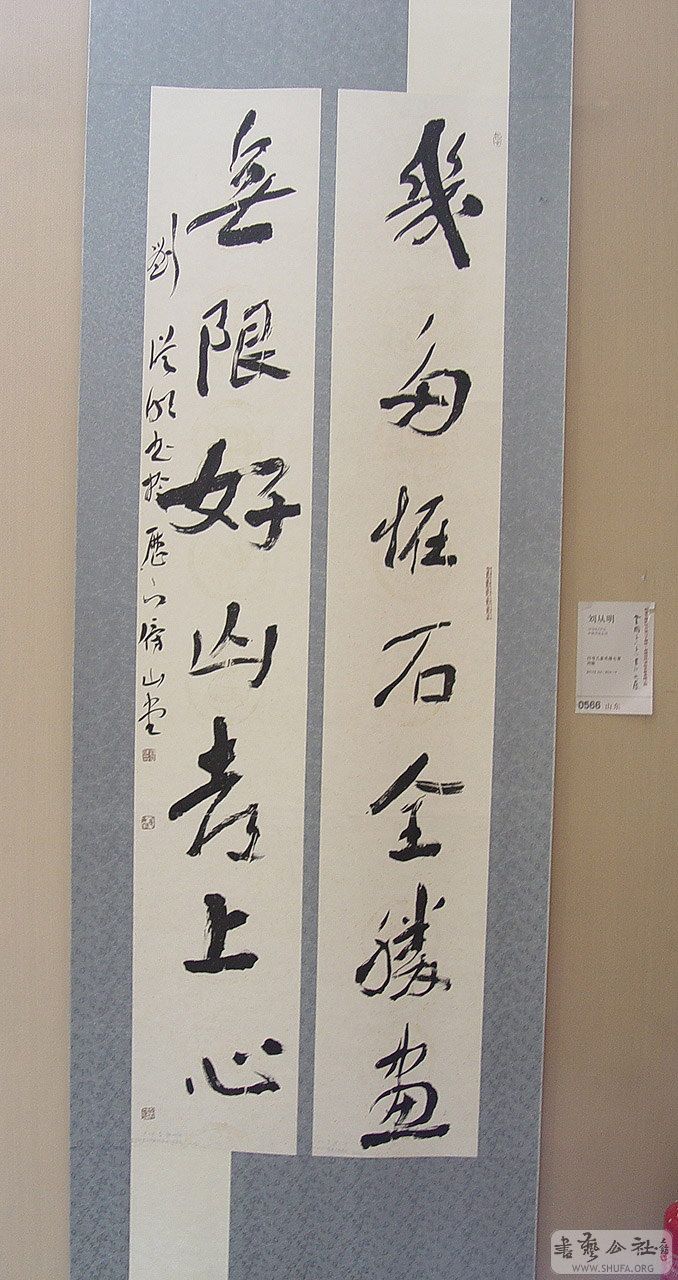 幾多恠石全勝畫
無限好山都上心
劉從明書於歷下傍山堂
刘从明
0566 山东
書藝公社
WWW.SHUFA.ORG